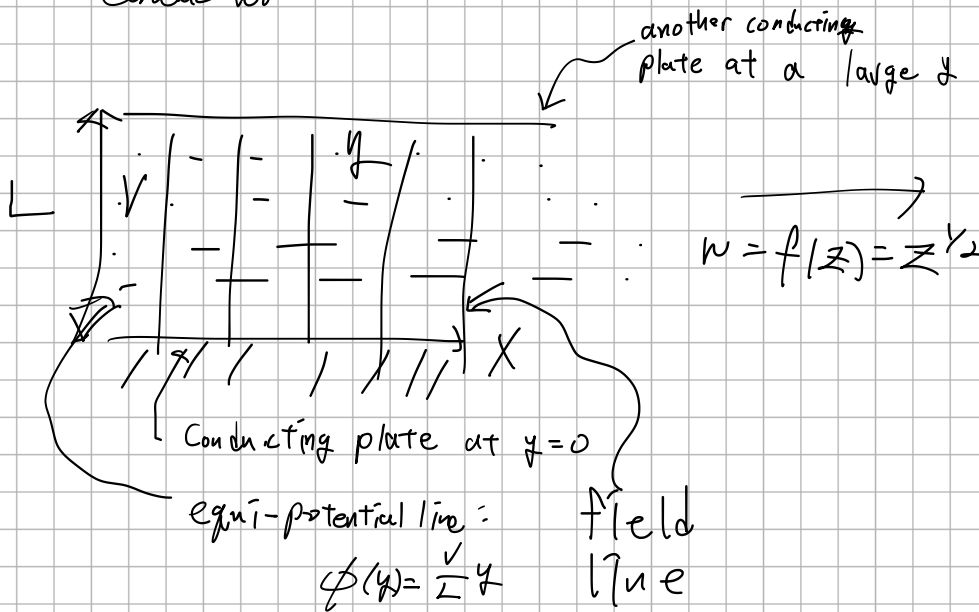 another conducting
plate at a large y
y
L
V
w = f(z) = z^{1/2}
X
Conducting plate at y=0
equi-potential line :
ϕ(y)= V/L y
field
line